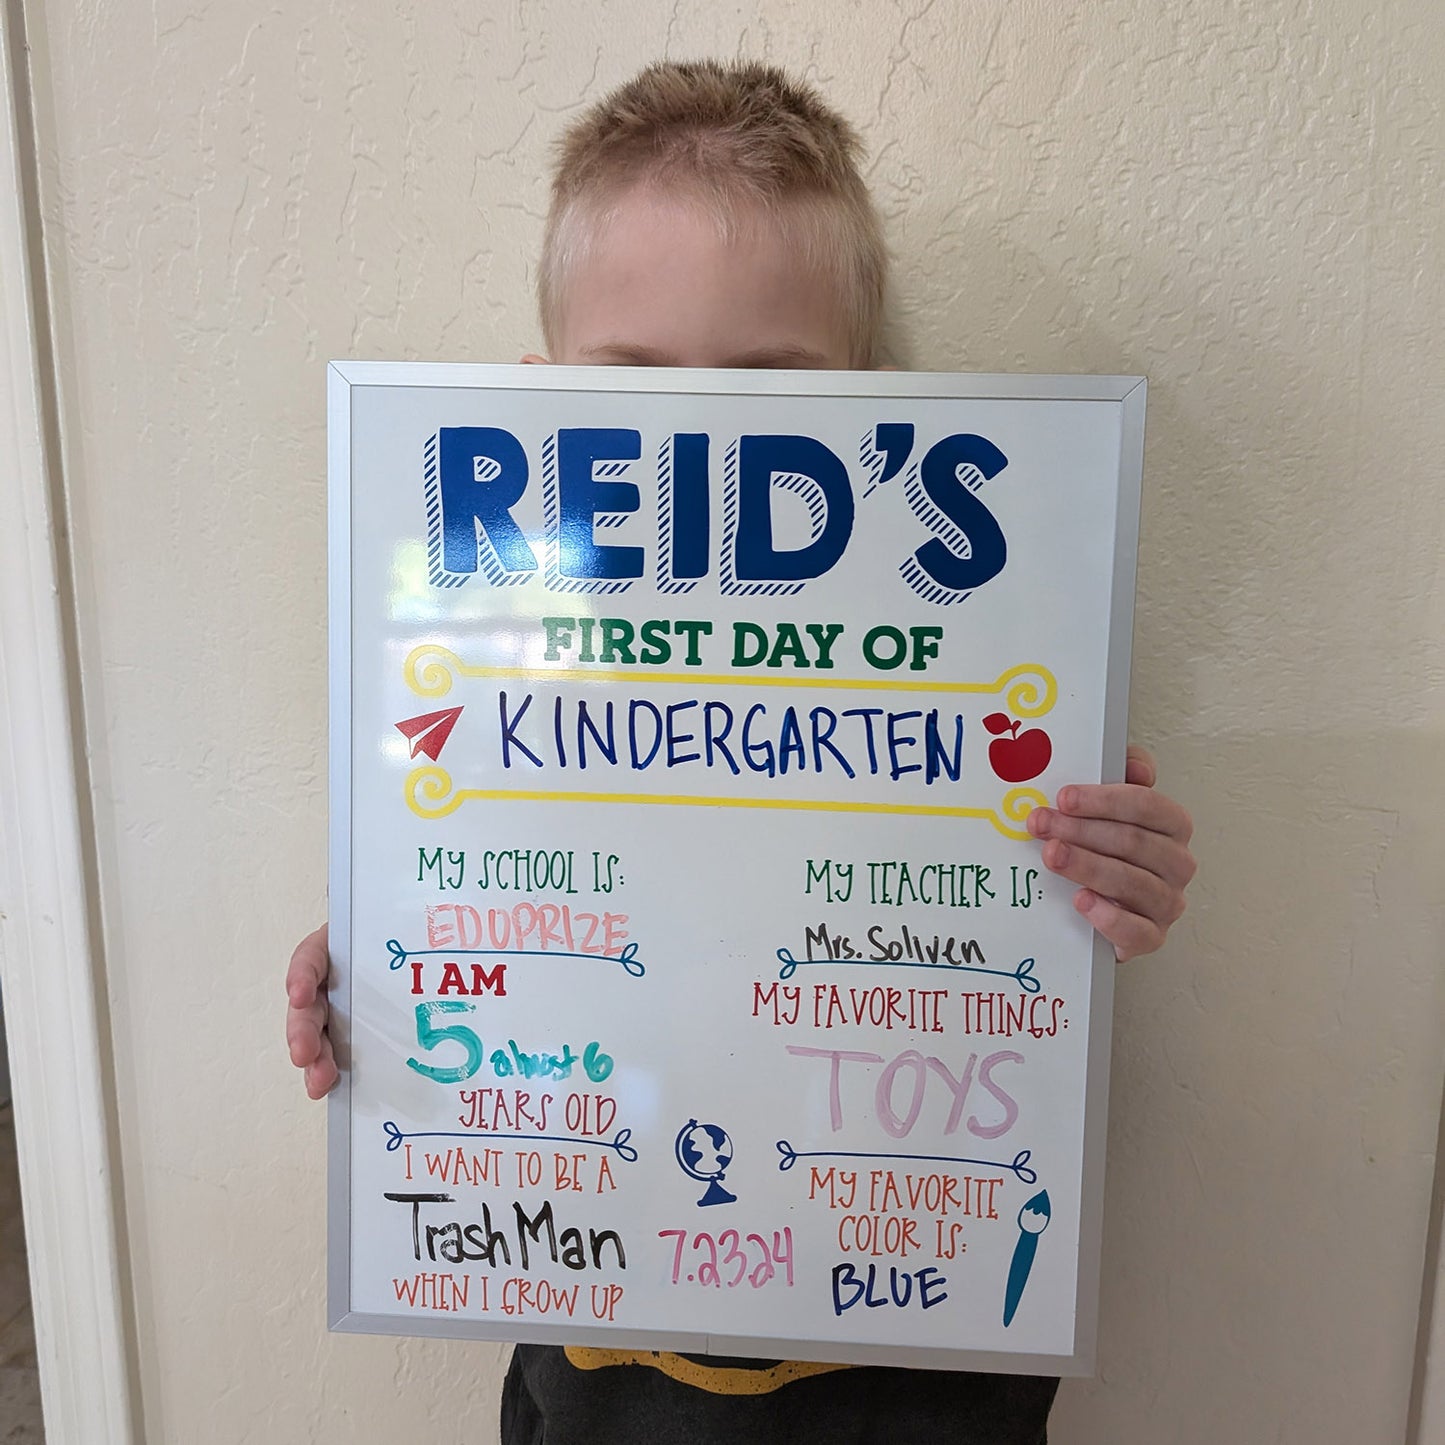 REID'S
FIRST DAY OF
KINDERGARTEN
MY SCHOOL IS:
EDUPRIZE
I AM
5 almost 6
YEARS OLD
I WANT TO BE A
Trash Man
WHEN I GROW UP
7.23.24
MY TEACHER IS:
Mrs. Soliven
MY FAVORITE THINGS:
TOYS
MY FAVORITE
COLOR IS:
BLUE